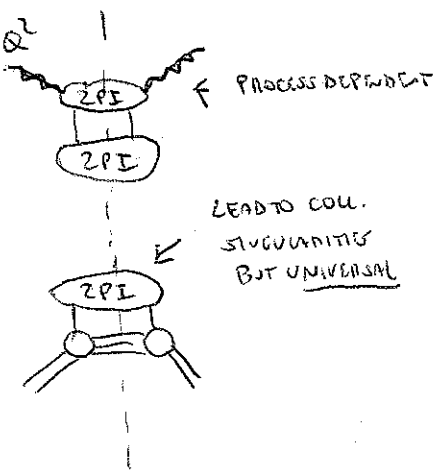 Q²
2PI
← PROCESS DEPENDENT
2PI
LEAD TO COLL.
SINGULARITIES
BUT UNIVERSAL
2PI